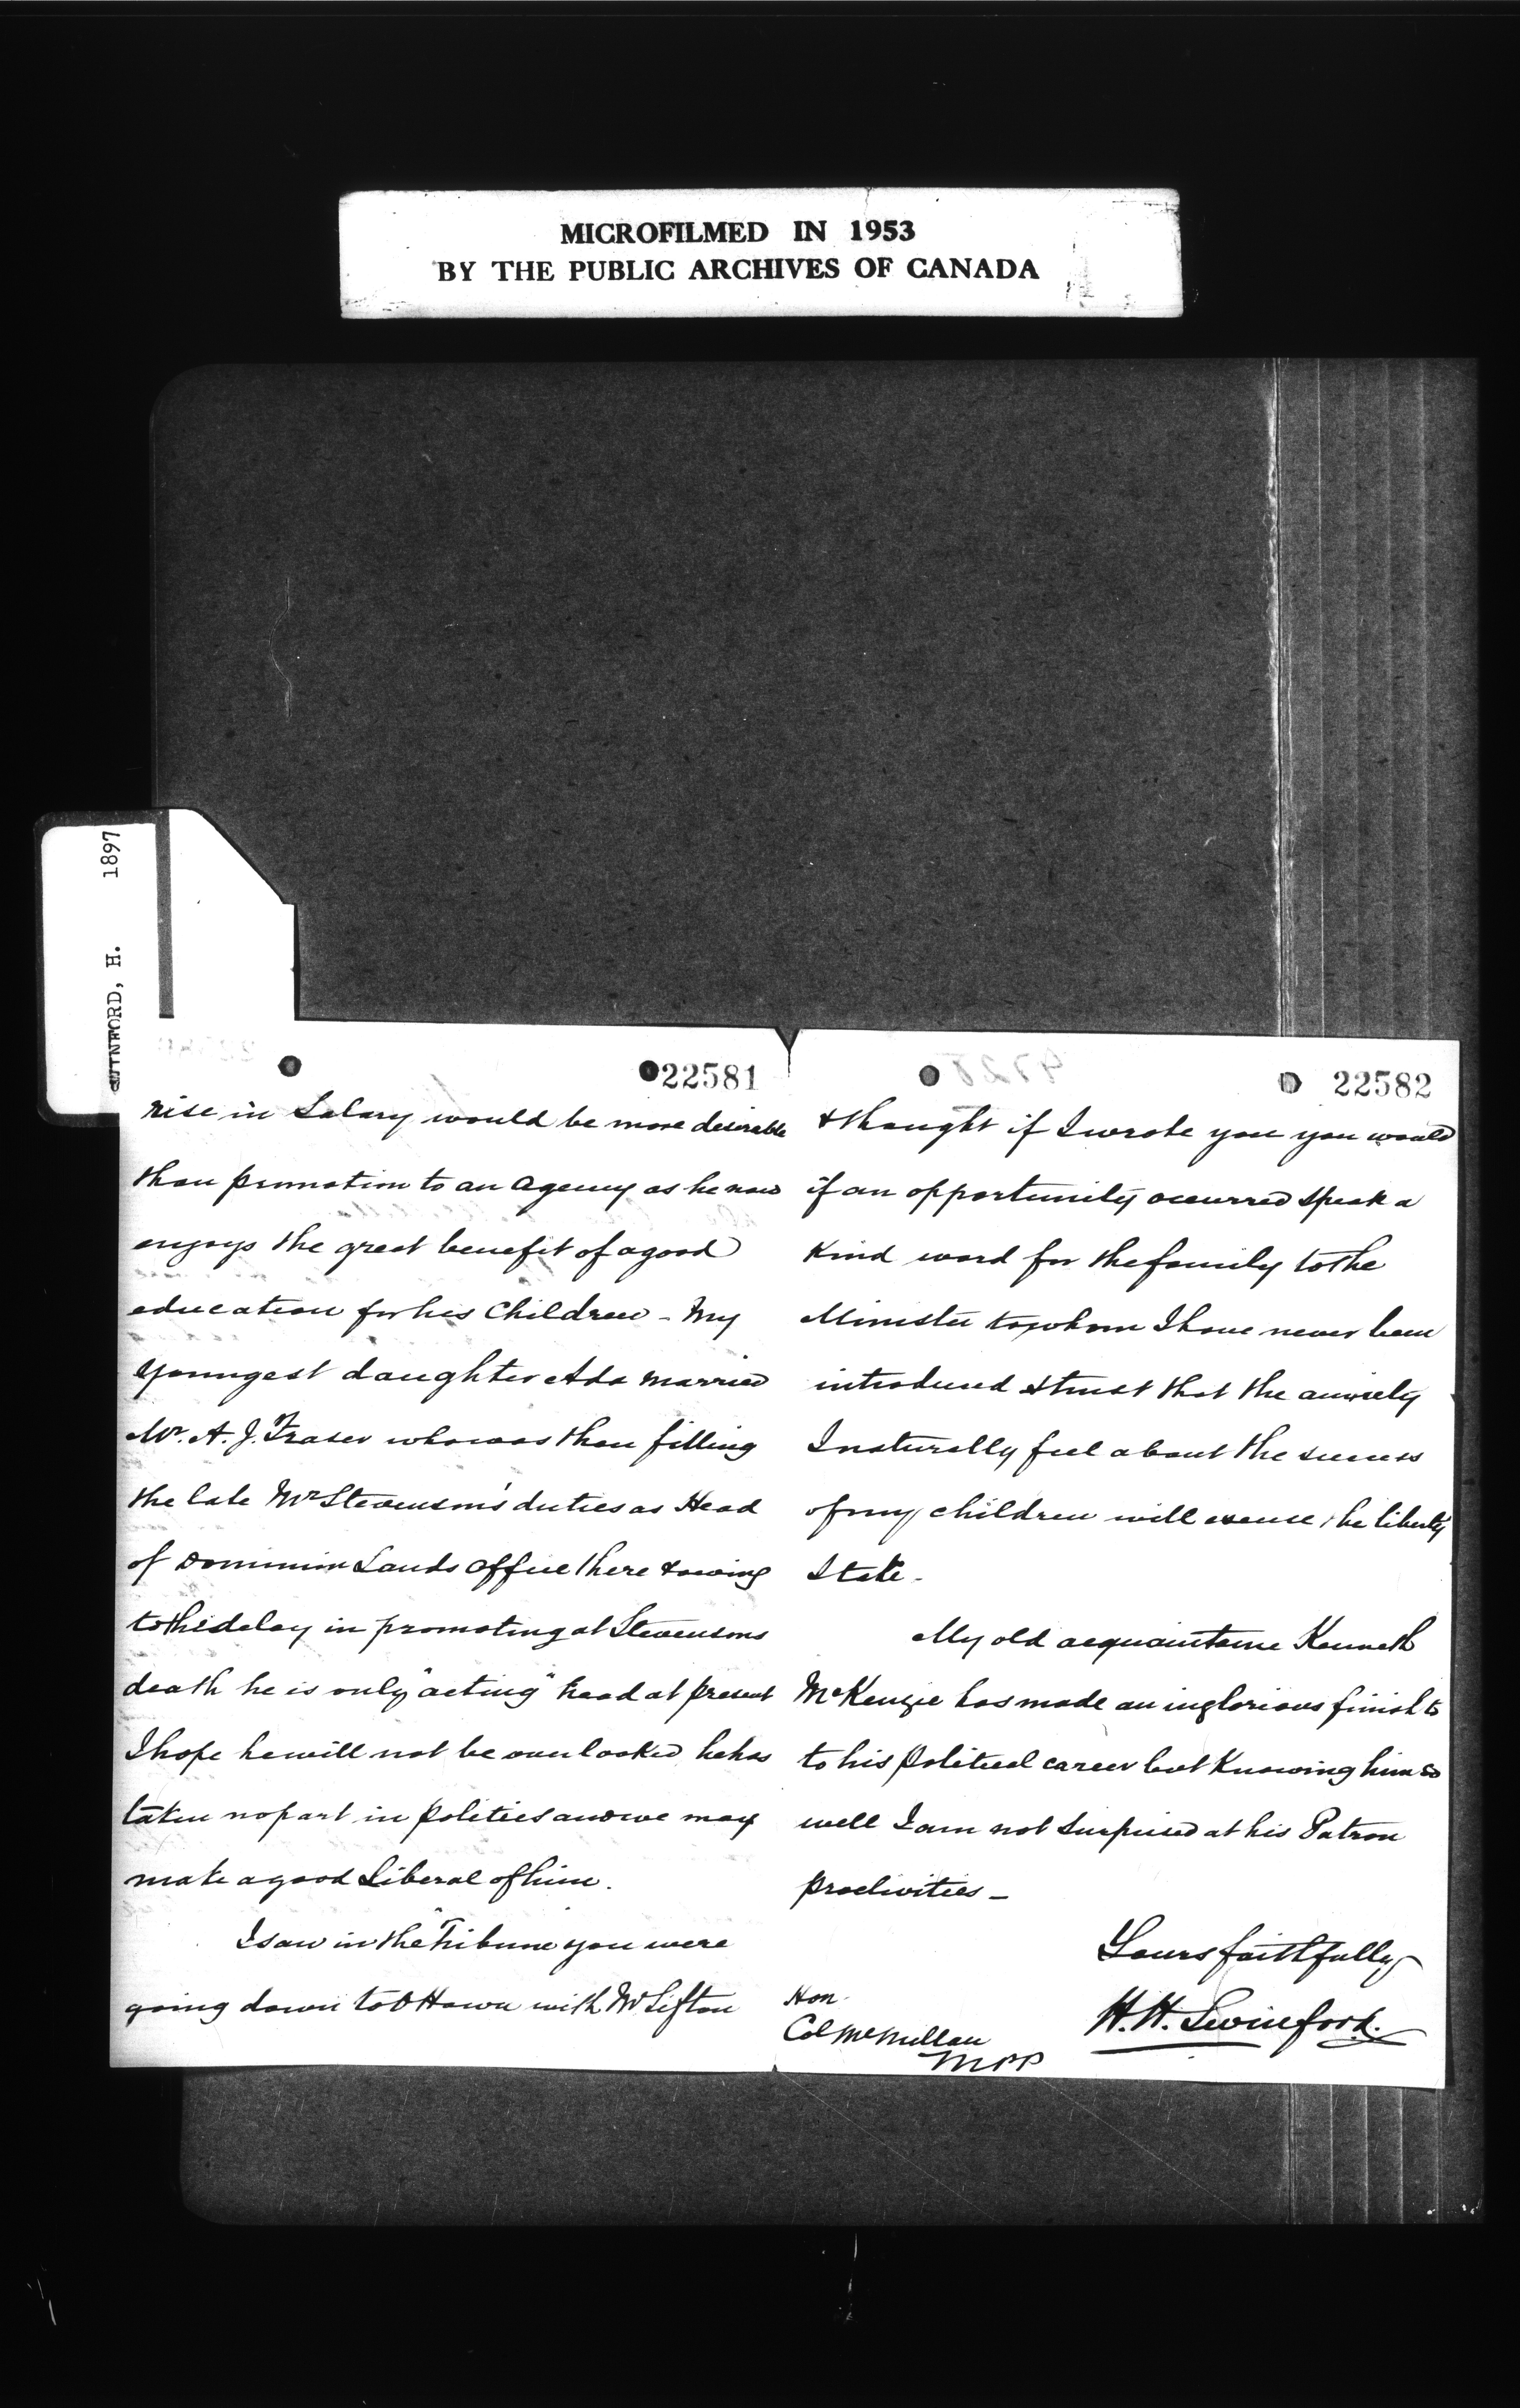 MICROFILMED IN 1953
BY THE PUBLIC ARCHIVES OF CANADA
SWINFORD, H. 1897
22581
rise in Salary would be more desirable
than promotion to an Agency as he now
enjoys the great benefit of a good
education for his Children - My
youngest daughter Ada married
Mr. A. J. Fraser who was then filling
the late Mr Stevenson's duties as Head
of Dominion Lands Office there & owing
to the delay in promoting at Stevensons
death he is only "acting" head at present
I hope he will not be overlooked he has
taken no part in politics and we may
make a good Liberal of him.
I saw in the "Tribune you were
going down to Ottawa with Mr Sifton
22582
& thought if I wrote you you would
if an opportunity occurred speak a
Kind word for the family to the
Minister to whom I have never been
introduced & trust that the anxiety
I naturally feel about the success
of my children will excuse the liberty
I take -
My old acquaintance Kenneth
McKenzie has made an inglorious finish to
to his political career but Knowing him so
well I am not surprised at his Patron
proclivities -
Yours faithfully
H. H. Swinford.
Hon.
Col McMillan
MPP